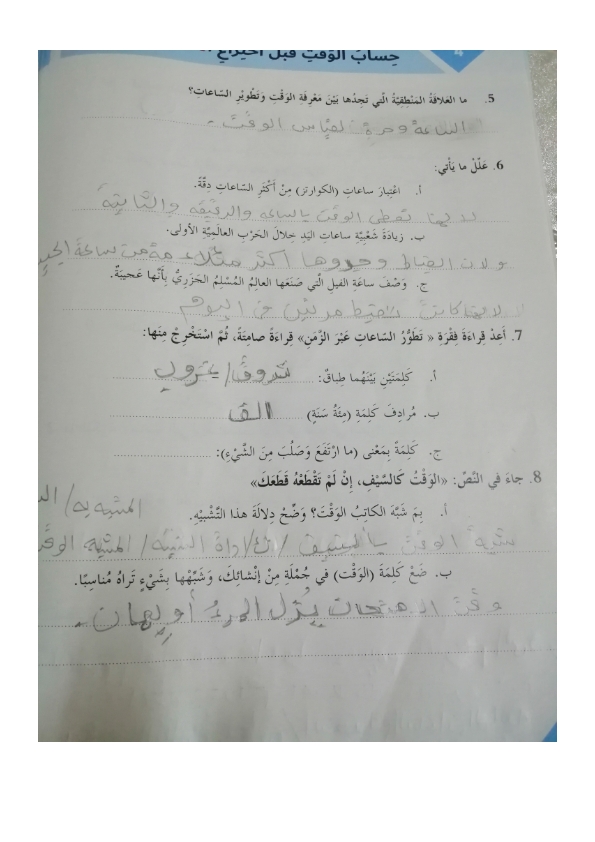 حِسابُ الوَقْتِ قَبْلَ اخْتِراعِ
4
5. ما العَلاقَةُ المَنْطِقِيَّةُ الَّتي تَجِدُها بَيْنَ مَعْرِفَةِ الوَقْتِ وَتَطْويرِ السّاعاتِ؟
الساعة وحدة لقياس الوقت -
6. عَلِّلْ ما يَأْتي:
أ. اعْتِبارَ ساعاتِ (الكوارتز) مِنْ أَكْثَرِ السّاعاتِ دِقَّةً.
لانها تعطي الوقت بالساعه والدقيقه والثانية
ب. زِيادَةَ شَعْبِيَّةِ ساعاتِ اليَدِ خِلالَ الحَرْبِ العالَمِيَّةِ الأولى.
ولان الضباط وجدوها اكثر ملاءمة من ساعة الجيب
ج. وَصْفَ ساعَةِ الفيلِ الَّتي صَنَعَها العالِمُ المُسْلِمُ الجَزَرِيُّ بِأَنَّها عَجيبَةٌ.
لانها كانت مرتين في اليوم
7. أَعِدْ قِراءَةَ فِقْرَةِ « تَطَوُّرُ السّاعاتِ عَبْرَ الزَّمَنِ» قِراءَةً صامِتَةً، ثُمَّ اسْتَخْرِجْ مِنَها:
أ. كَلِمَتَيْنِ بَيْنَهُما طِباقٌ:
ب. مُرادِفَ كَلِمَةِ (مِئَةُ سَنَةٍ)
ج. كَلِمَةً بِمَعْنى (ما ارْتَفَعَ وَصَلُبَ مِنَ الشَّيْءِ):
8. جاءَ في النَّصِّ: «الوَقْتُ كَالسَّيْفِ، إِنْ لَمْ تَقْطَعْهُ قَطَعَكَ»
المشبه به/
أ. بِمَ شَبَّهَ الكاتِبُ الوَقْتَ؟ وَضِّحْ دِلالَةَ هذا التَّشْبيْهِ.
شبه الوقت بالسيف /ك/اداة التشبيه/ المشبه الوقت
ب. ضَعْ كَلِمَةَ (الوَقْت) في جُمْلَةٍ مِنْ إِنْشائِكَ، وَشَبِّهْها بِشَيْءٍ تَراهُ مُناسِبًا.
وقت المرء أو يهان -